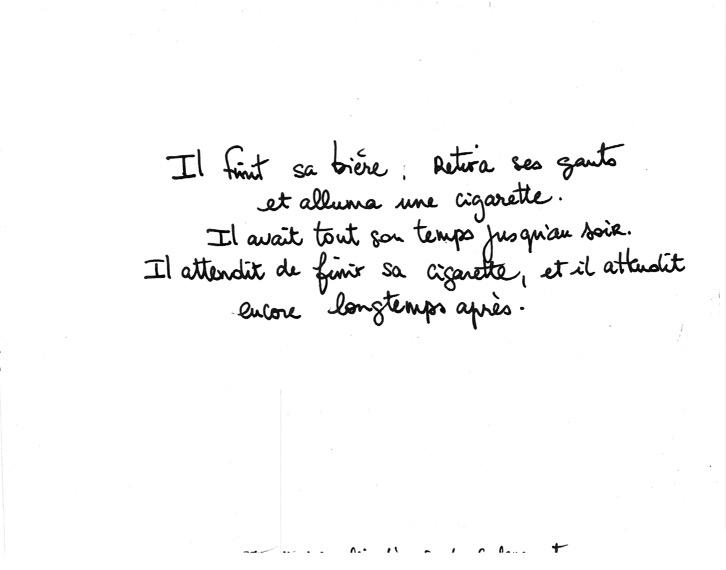 Il finit sa bière. Retira ses gants
et alluma une cigarette.
Il avait tout son temps jusqu'au soir.
Il attendit de finir sa cigarette, et il attendit
encore longtemps après.